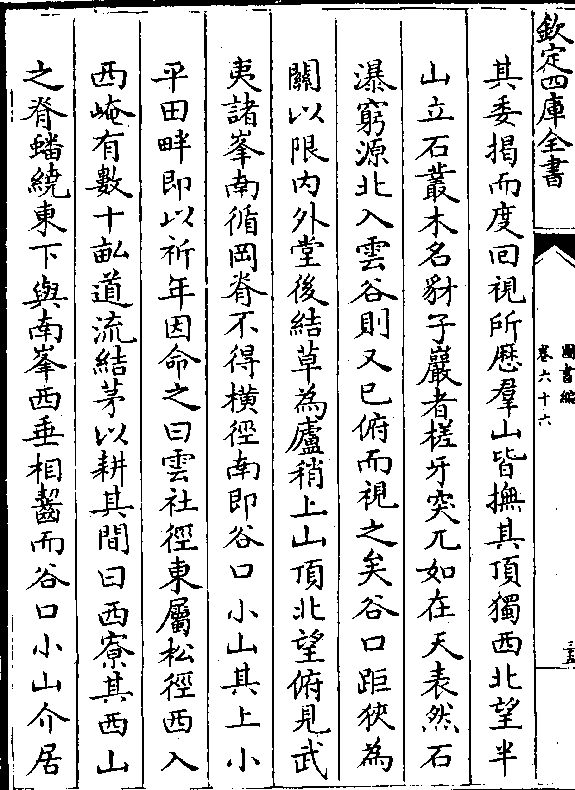 欽定四庫全書
圖書編
卷六十六
其委揭而度回視所歴羣山皆撫其頂獨西北望半
山立石叢木名豺子巖者槎牙突兀如在天表然石
瀑窮源北入雲谷則又已俯而視之矣谷口距狹為
關以限内外堂後結草為廬稍上山頂北望俯見武
夷諸峯南循岡脊不得橫徑南即谷口小山其上小
平田畔即以祈年因命之曰雲社徑東屬松徑西入
西崦有數十畝道流結茅以耕其間曰西寮其西山
之脊蟠繞東下與南峯西垂相齧而谷口小山介居